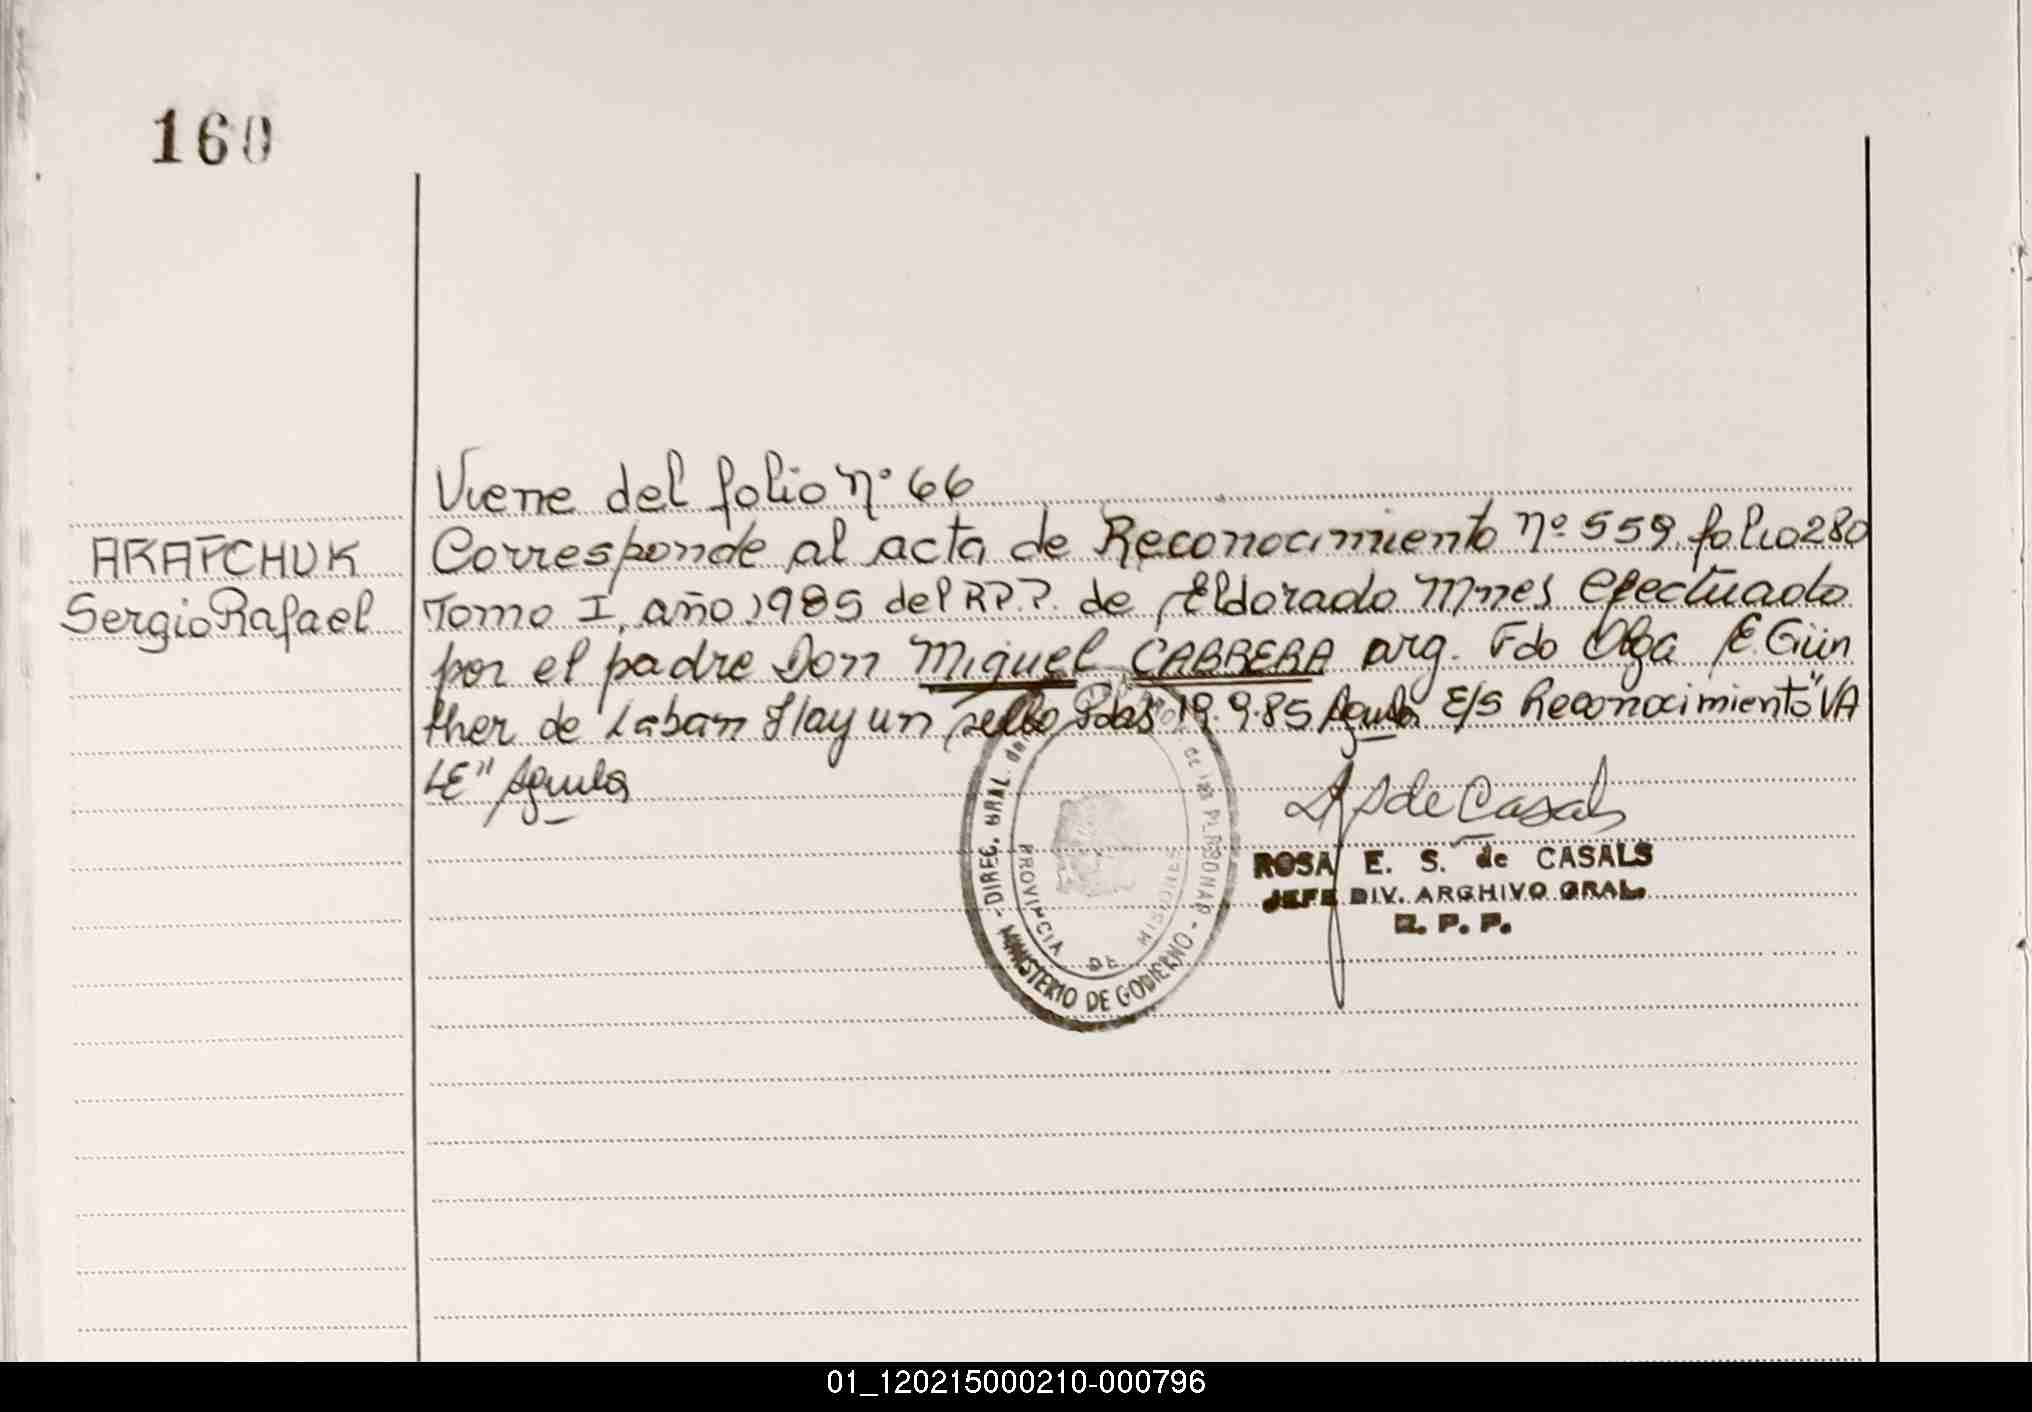 160
Viene del folio nº 66
ARAPCHUK
Sergio Rafael
Corresponde al acta de Reconocimiento nº 559 folio 280
Tomo I, año 1985 del R.P.P. de Eldorado Mnes efectuado
por el padre Don Miguel CABRERA arg. Fdo Olga E. Gün
ther de Laban Hay un sello Pdas 19.9.85 Aguila E/S Reconocimiento "VA
LE" Aguila
de Casals
ROSA E. S. de CASALS
JEFE DIV. ARCHIVO GRAL.
R. P. P.
DIREC. GRAL. de las PERSONAS - MINISTERIO DE GOBIERNO -
PROVINCIA DE MISIONES
01_120215000210-000796